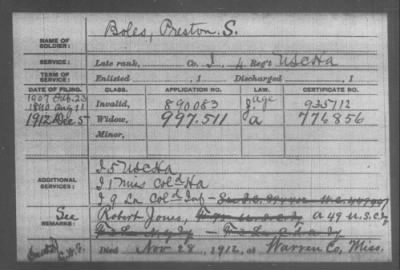 NAME OF SOLDIER: Boles, Preston. S.
SERVICE: Late rank, Co. I, 4 Reg't USCHa
TERM OF SERVICE: Enlisted , 1 Discharged , 1
DATE OF FILING. CLASS. APPLICATION NO. LAW. CERTIFICATE NO.
1907 Feb. 23
1890 Aug 11 Invalid, 890083 g. age 935712
1912 Dec 5 Widow, 997.511 a 776856
Minor,
ADDITIONAL SERVICES: I 5 USCHa
I 1 Miss Col'd Ha
I 9 La Col'd Inf
REMARKS: See Robert Jones, A 49 U.S.C.Inf
Died Nov 28, 1912, at Warren Co, Miss.